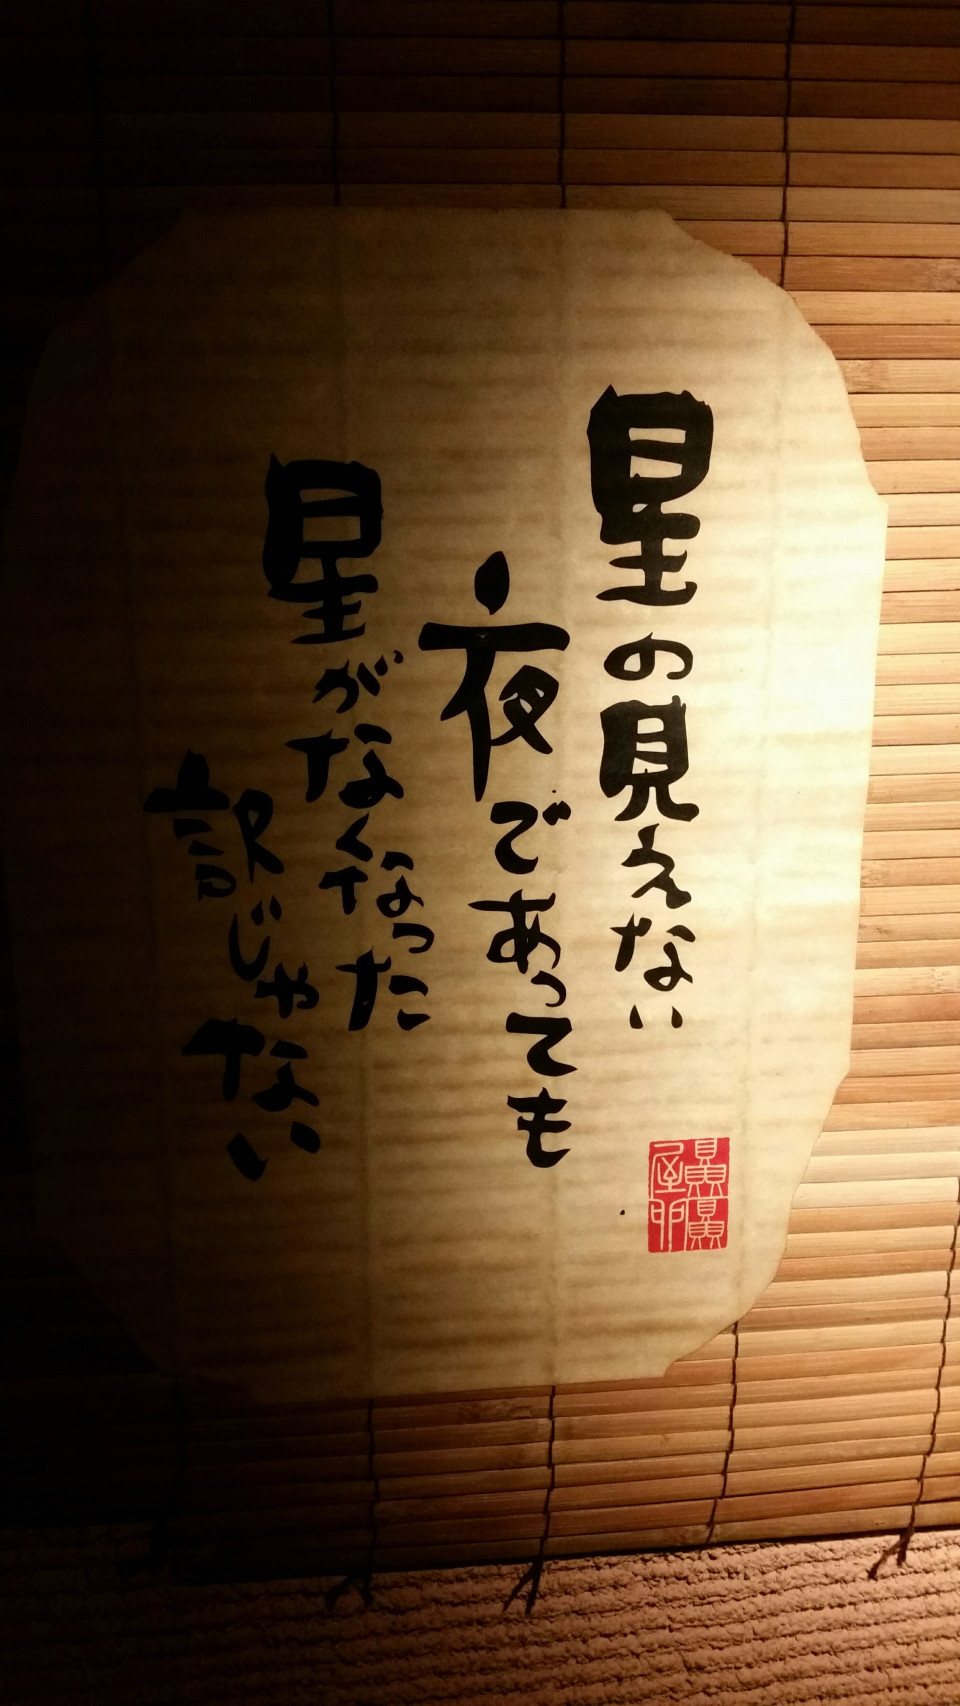 星の見えない
夜であっても
星がなくなった
訳じゃない